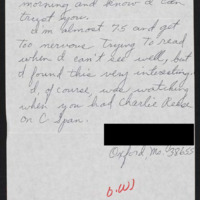 morning and know I can
trust you.
I'm almost 75 and get
too nervous trying to read
when I can't see well, but
I found this very interesting.
I, of course, was watching
when you had Charlie Reese
on C Span.
Oxford Ms. 38655